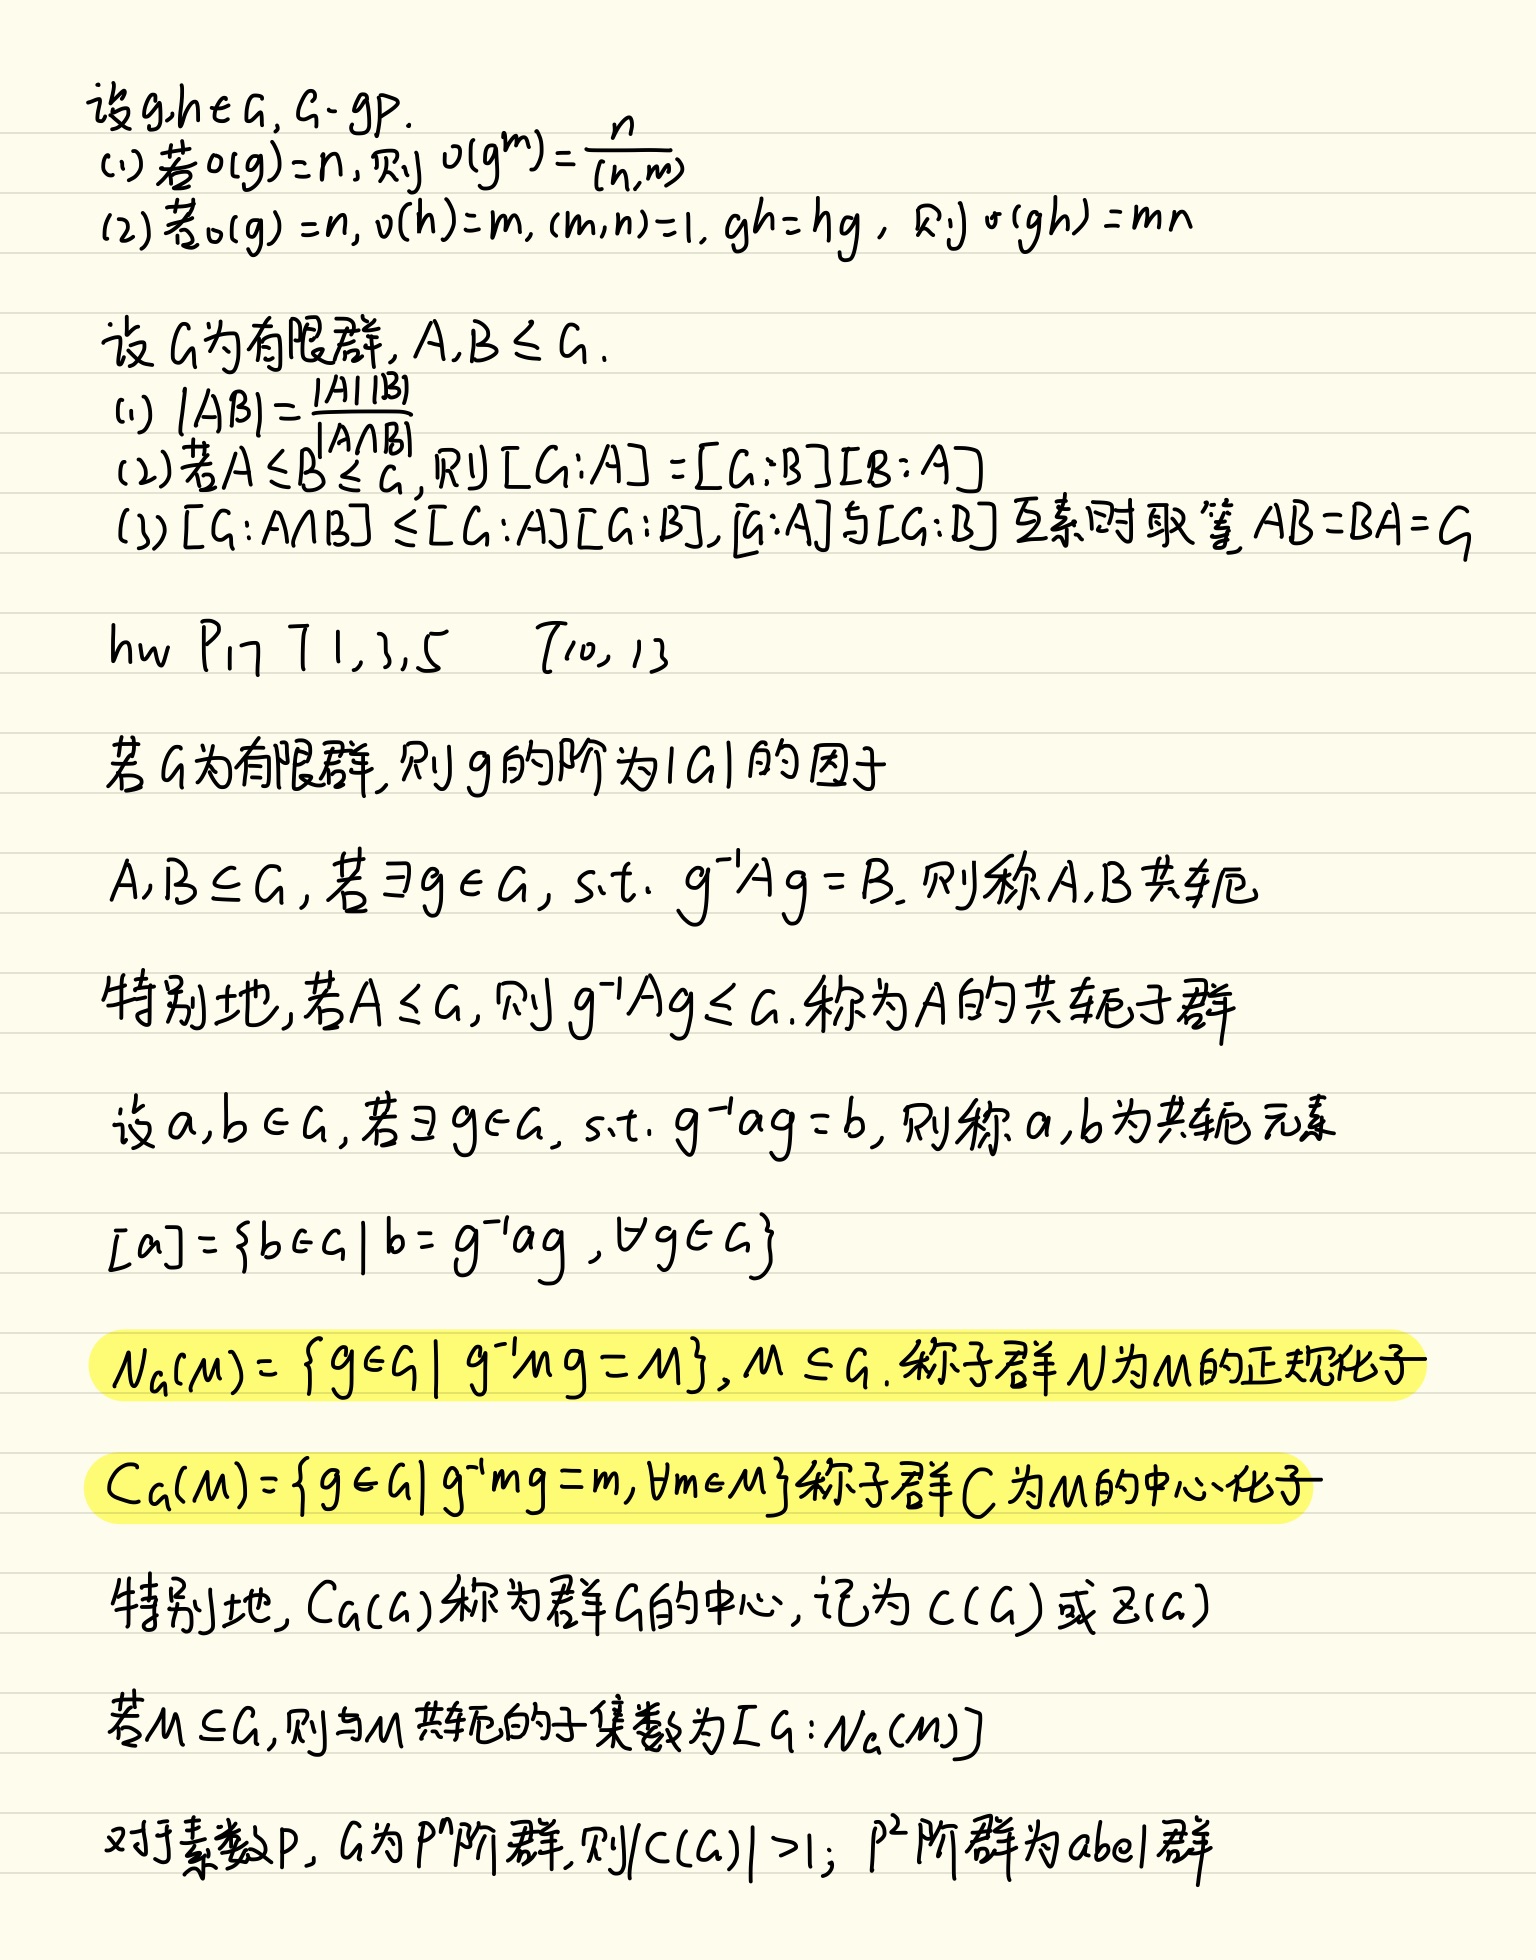 设g,h∈G, G-gp.
(1) 若o(g)=n, 则 o(g^m)=n/(n,m)
(2) 若o(g)=n, o(h)=m, (m,n)=1, gh=hg, 则 o(gh)=mn
设G为有限群, A,B≤G.
(1) |AB|=|A||B|/|A∩B|
(2) 若A≤B≤G, 则[G:A]=[G:B][B:A]
(3) [G:A∩B]≤[G:A][G:B], [G:A]与[G:B]互素时取等, AB=BA=G
hw P17 T1,3,5 T10,13
若G为有限群, 则g的阶为|G|的因子
A,B⊆G, 若∃g∈G, s.t. g⁻¹Ag=B. 则称A,B共轭
特别地, 若A≤G, 则g⁻¹Ag≤G. 称为A的共轭子群
设a,b∈G, 若∃g∈G, s.t. g⁻¹ag=b, 则称a,b为共轭元素
[a]={b∈G|b=g⁻¹ag, ∀g∈G}
N_G(M)={g∈G|g⁻¹Mg=M}, M⊆G. 称子群N为M的正规化子
C_G(M)={g∈G|g⁻¹mg=m, ∀m∈M}称子群C为M的中心化子
特别地, C_G(G)称为群G的中心, 记为C(G)或Z(G)
若M⊆G, 则与M共轭的子集数为[G:N_G(M)]
对于素数p, G为pⁿ阶群, 则|C(G)|>1; p²阶群为abel群